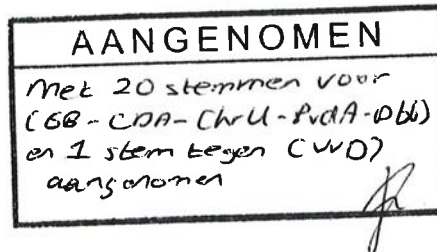 AANGENOMEN
Met 20 stemmen voor
(GB - CDA - ChrU - PvdA - D66)
en 1 stem tegen (VVD)
aangenomen